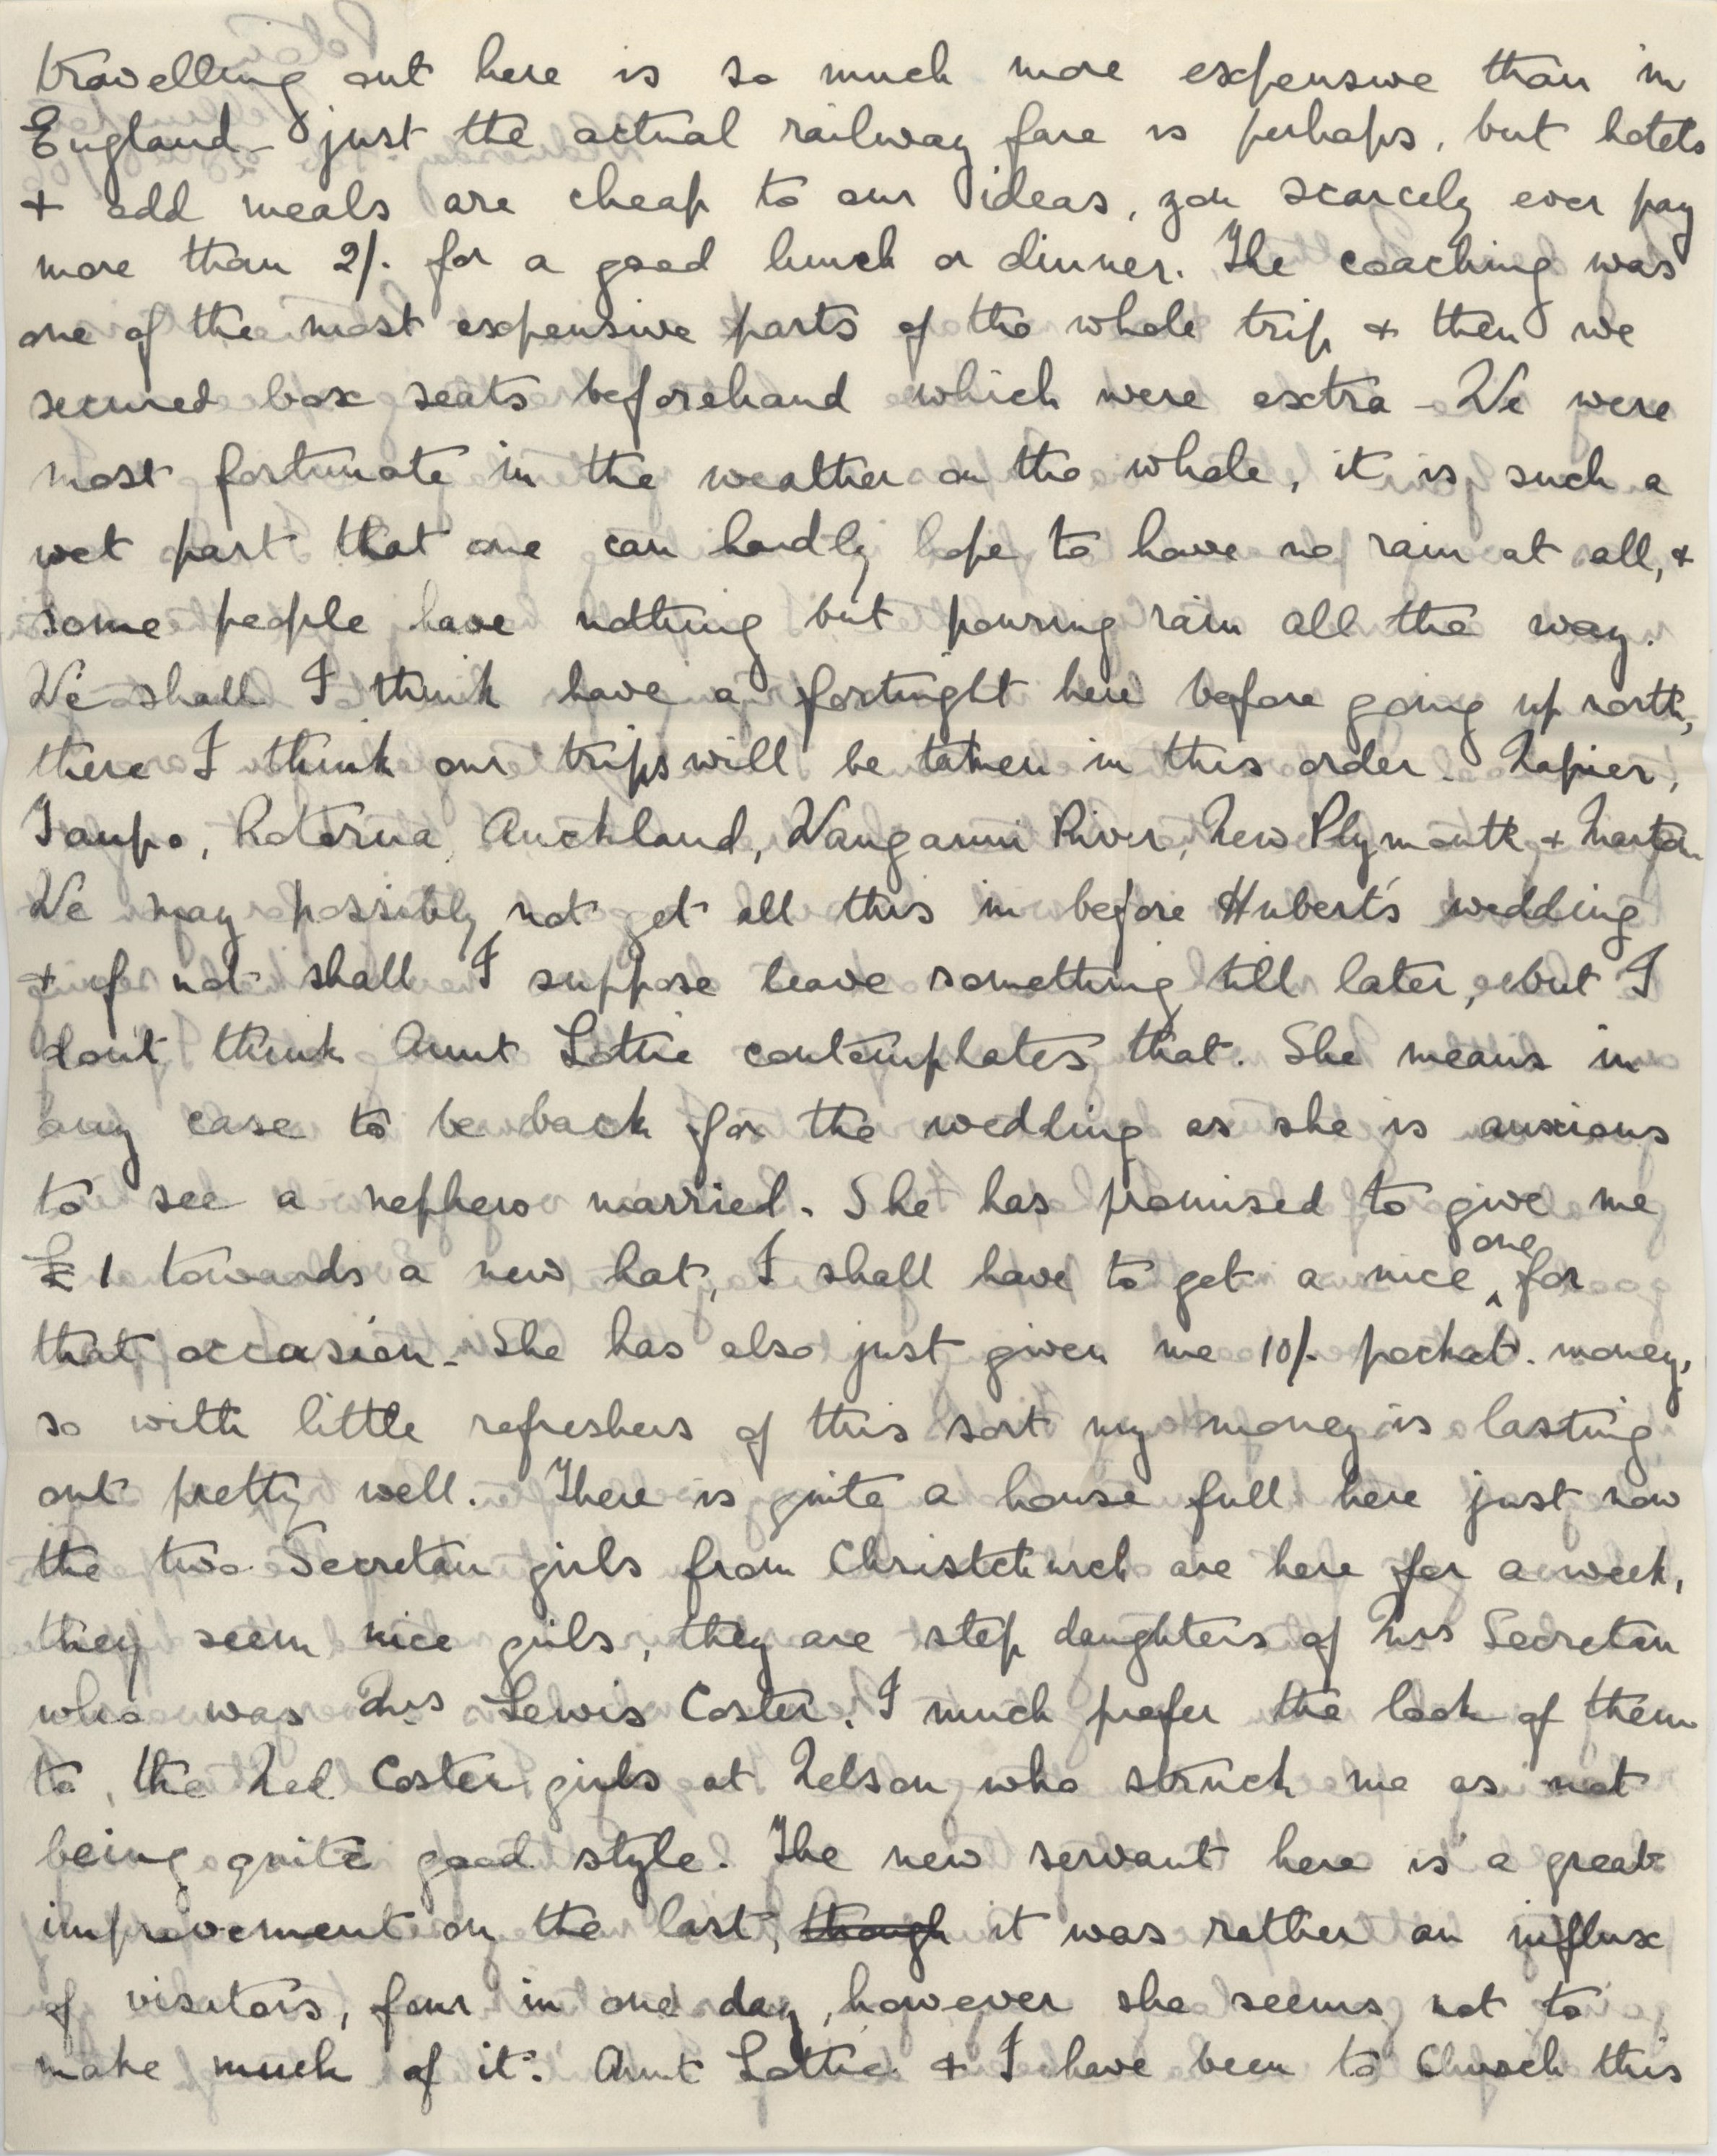 travelling out here is so much more expensive than in
England - just the actual railway fare is perhaps, but hotels
+ odd meals are cheap to our ideas, you scarcely ever pay
more than 2/. for a good lunch or dinner. The coaching was
one of the most expensive parts of the whole trip + then we
secured box seats beforehand which were extra - We were
most fortunate in the weather on the whole, it is such a
wet part that one can hardly hope to have no rain at all, +
some people have nothing but pouring rain all the way.
We shall I think have a fortnight here before going up north,
there I think our trips will be taken in this order. Napier,
Taupo, Rotorua, Auckland, Wanganui River, New Plymouth + Marton
We may possibly not get all this in before Hubert's wedding
+ if not shall I suppose leave something till later, but I
don't think Aunt Lottie contemplates that. She means in
any case to be back for the wedding as she is anxious
to see a nephew married. She has promised to give me
£1 towards a new hat, I shall have to get a nice one for
that occasion - She has also just given me 10/. pocket. money,
so with little refreshers of this sort my money is lasting
out pretty well. There is quite a house full here just now
the two Secretan girls from Christchurch are here for a week,
they seem nice girls, they are step daughters of Mrs Secretan
who was Mrs Lewis Coster. I much prefer the look of them
to the Ned Coster girls at Nelson who struck me as not
being quite good style. The new servant here is a great
improvement on the last, though it was rather an influx
of visitors, four in one day, however she seems not to
make much of it. Aunt Lottie + I have been to Church this